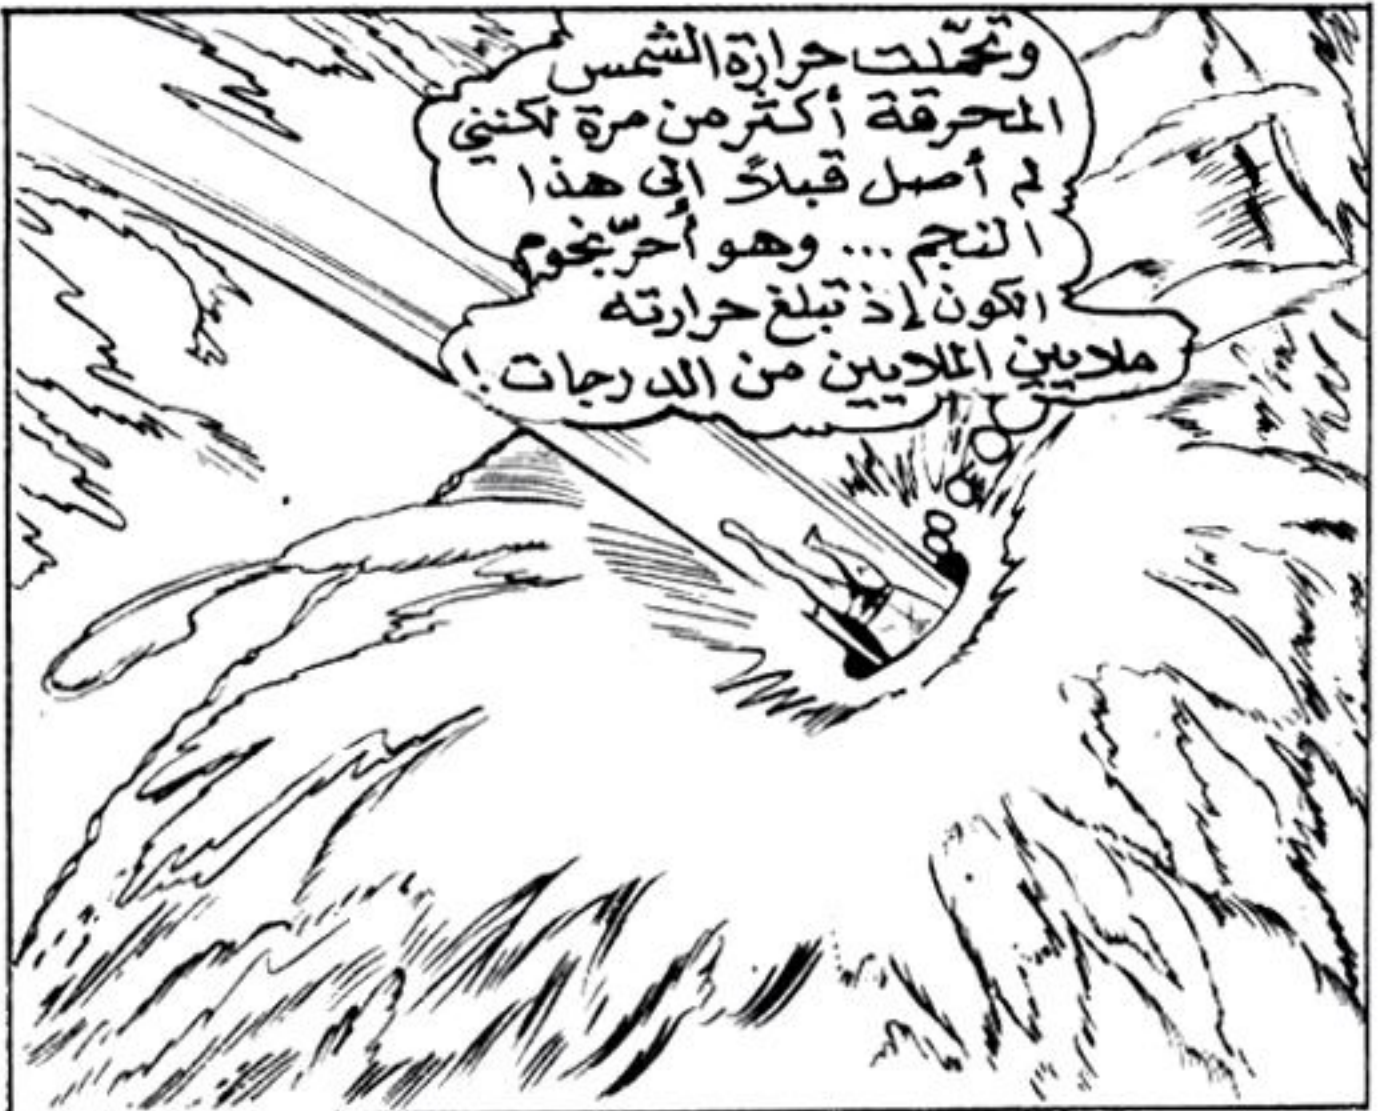 وتحمّلت حرارة الشمس
المحرقة أكثر من مرة لكنني
لم أصل قبلاً الى هذا
النجم ... وهو أحرّ نجوم
الكون إذ تبلغ حرارته
ملايين الملايين من الدرجات !